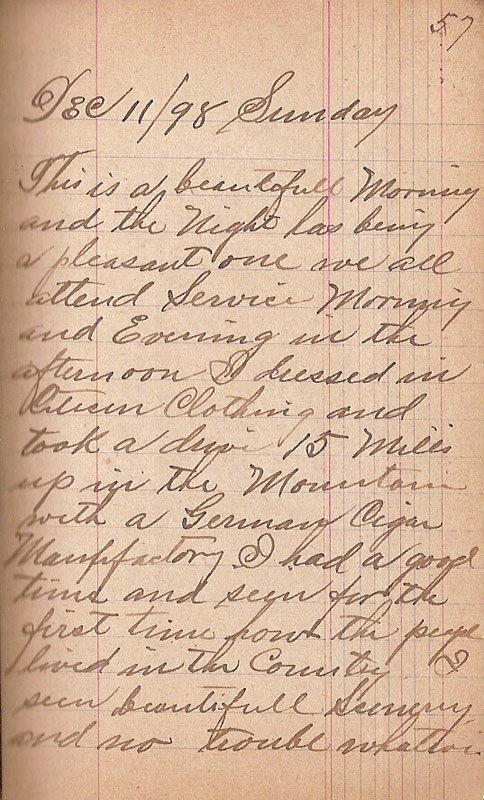 57
Dec 11/98 Sunday
This is a beautifull Morning
and the Night has being
a pleasant one we all
attend Service Morning
and Evening in the
afternoon I dressed in
Citicen Clothing and
took a drive 15 Mills
up in the Mountain
with a German Cigar
Manffactory I had a good
time and seen for the
first time how the peopl
lived in the Country I
seen beautifull Scenery
and no trouble whatso